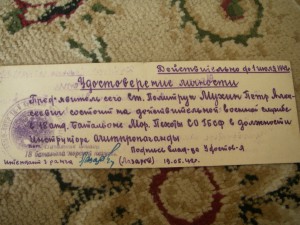 Действительно до 1 июля
Удостоверение личности
Предъявитель сего Ст. Политрук Мухин Петр Алек-
сеевич состоит на действительной военной службе
в Батальоне Мор. Пехоты СО ГБСФ в должности
Инструктора Агитпропаганды
Подпись влад-ца Удостов-я
Интендант 3 ранга (Лазарев) 19.05.42г.